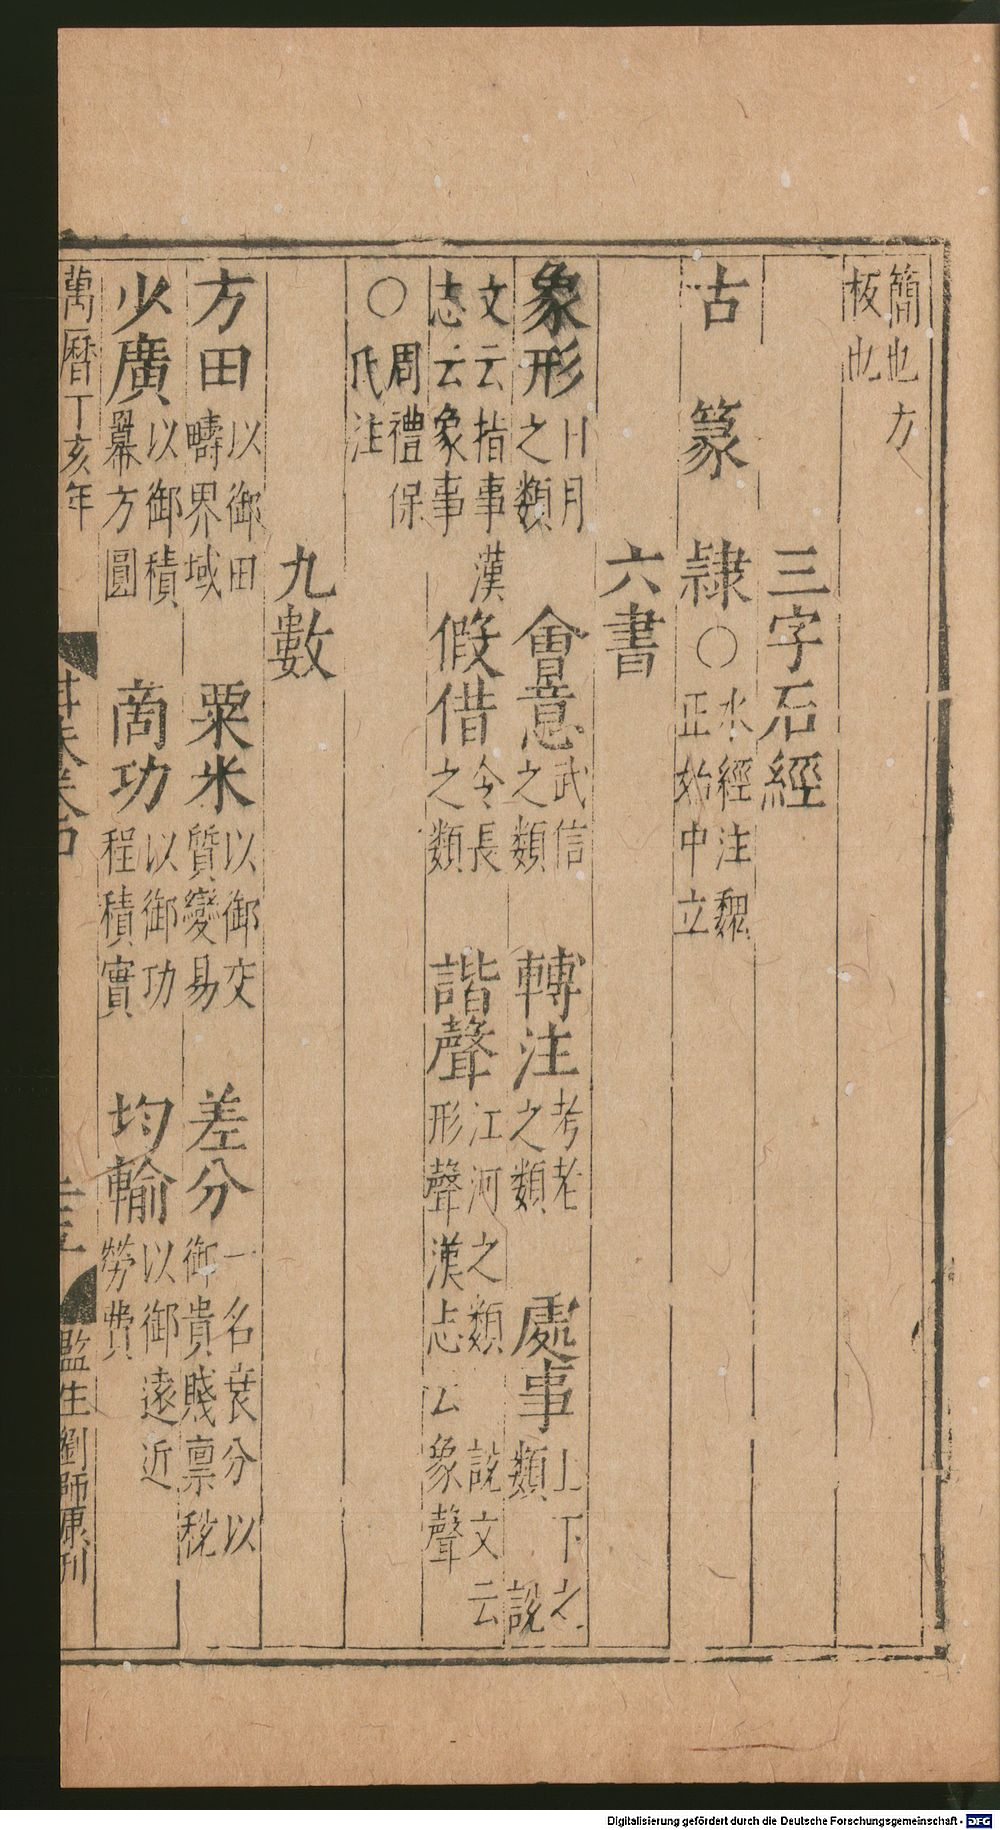 簡也方
板也
三字石經
古 篆 隷○水經注魏
正始中立
六書
象形日月之類 會意武信之類 轉注考老之類 處事上下之類 說
文云指事漢志云象事 假借令長之類 諧聲江河之類 說文云形聲漢志云象聲
○周禮保氏注
九數
方田以御田疇界域 粟米以御交質變易 差分一名衰分以御貴賤禀稅
少廣以御積羃方圓 商功以御功程積實 均輸以御遠近勞費
萬曆丁亥年
監生劉師
刊
Digitalisierung gefördert durch die Deutsche Forschungsgemeinschaft - DFG